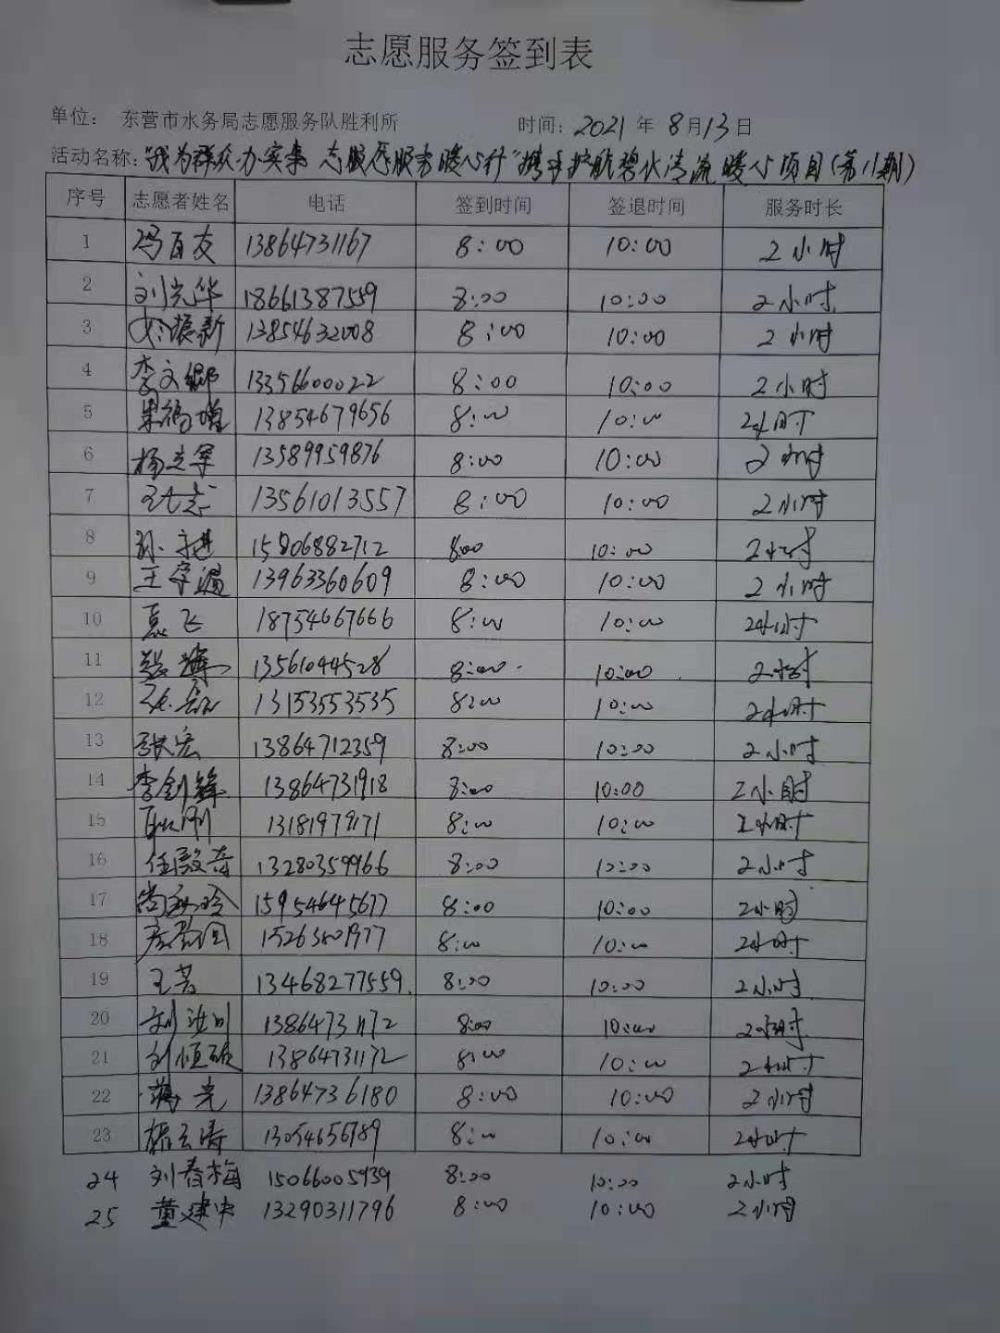 志愿服务签到表
单位： 东营市水务局志愿服务队胜利所 时间: 2021 年 8 月 13 日
活动名称: "我为群众办实事 志愿服务暖心行"携手护航碧水清流暖心项目(第11期)
序号 志愿者姓名 电话 签到时间 签退时间 服务时长
1 冯百友 13864731167 8:00 10:00 2小时
2 刘光华 18661387559 8:00 10:00 2小时
3 振新 13854632008 8:00 10:00 2小时
4 李文卿 13356600022 8:00 10:00 2小时
5 13854679656 8:00 10:00 2小时
6 杨立军 13589959876 8:00 10:00 2小时
7 13561013557 8:00 10:00 2小时
8 孙 15806882712 8:00 10:00 2小时
9 王守温 13963360609 8:00 10:00 2小时
10 袁飞 18754667666 8:00 10:00 2小时
11 13561044528 8:00 10:00 2小时
12 张磊 13153553535 8:00 10:00 2小时
13 张宏 13864712359 8:00 10:00 2小时
14 李剑锋 13864731918 8:00 10:00 2小时
15 8:00 10:00 2小时
16 任毅奇 13280359966 8:00 10:00 2小时
17 尚玲 15954645677 8:00 10:00 2小时
18 8:00 10:00 2小时
19 王芳 13468277559 8:00 10:00 2小时
20 刘 13864731172 8:00 10:00 2小时
21 刘恒 13864731172 8:00 10:00 2小时
22 蒋光 13864736180 8:00 10:00 2小时
23 杨云涛 13054656789 8:00 10:00 2小时
24 刘春梅 15066005939 8:00 10:00 2小时
25 董建中 13290311796 8:00 10:00 2小时